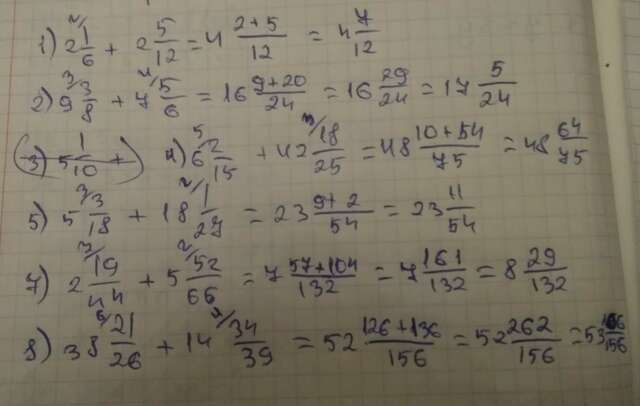 1) 2 1/6 + 2 5/12 = 4 (2+5)/12 = 4 7/12
2) 9 3/8 + 7 5/6 = 16 (9+20)/24 = 16 29/24 = 17 5/24
3) 5 1/10 + 4) 6 2/15 + 42 18/25 = 48 (10+54)/75 = 48 64/75
5) 5 3/18 + 18 1/27 = 23 (9+2)/54 = 23 11/54
7) 2 19/44 + 5 52/66 = 7 (57+104)/132 = 7 161/132 = 8 29/132
8) 38 21/26 + 14 34/39 = 52 (126+136)/156 = 52 262/156 = 53 106/156